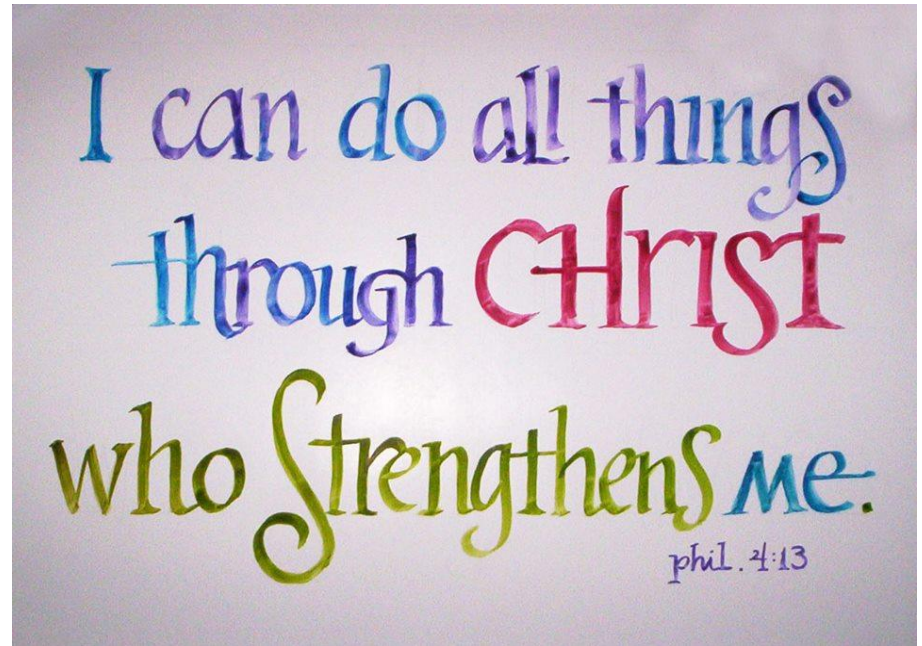 I can do all things
through CHrist
who Strengthens me.
phil. 4:13